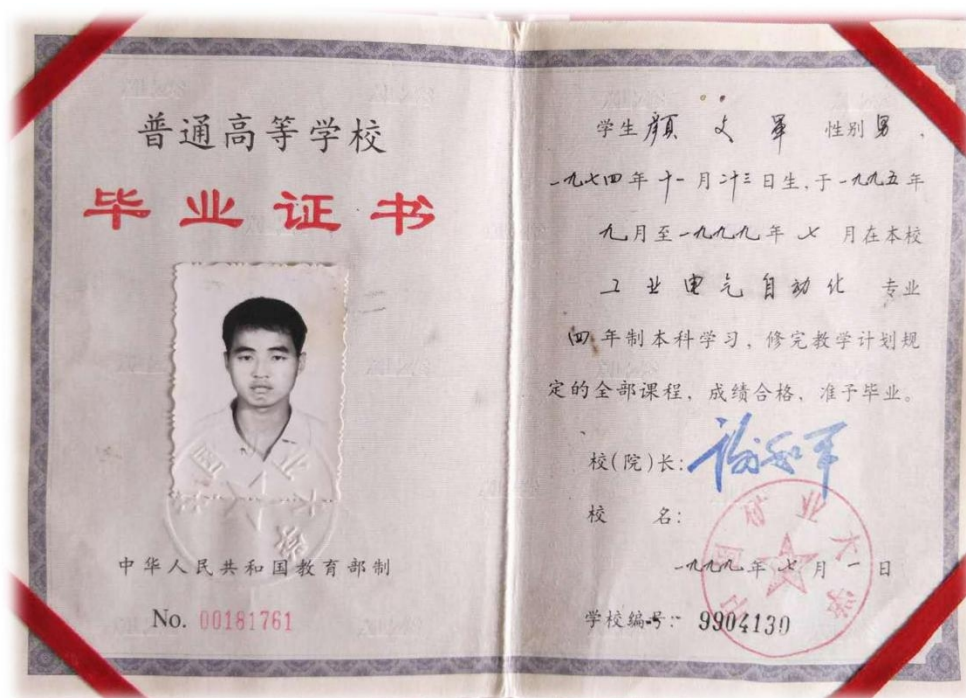 普通高等学校
毕业证书
中华人民共和国教育部制
No. 00181761
学生颜文军 性别男,
一九七四年十一月廿三日生,于一九九五年
九月至一九九九年七月在本校
工业电气自动化 专业
四年制本科学习,修完教学计划规
定的全部课程,成绩合格,准予毕业。
校(院)长:
校 名:
中国矿业大学
一九九九年七月一日
学校编号:9904130